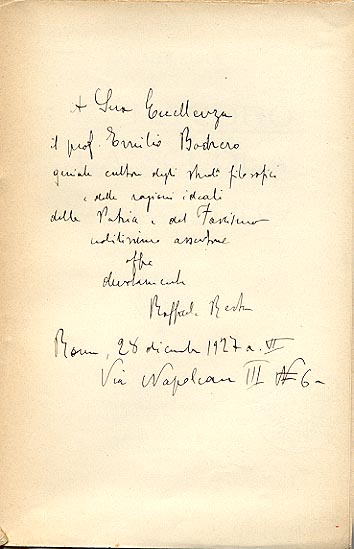 A Sua Eccellenza
il prof. Emilio Bodrero
geniale cultore degli studi filosofici
e delle ragioni ideali
della Patria e del Fascismo
nobilissimo assertore
offre
devotamente
Raffaele
Roma, 28 dicembre 1927 a. VI
Via Napoleone III N 6